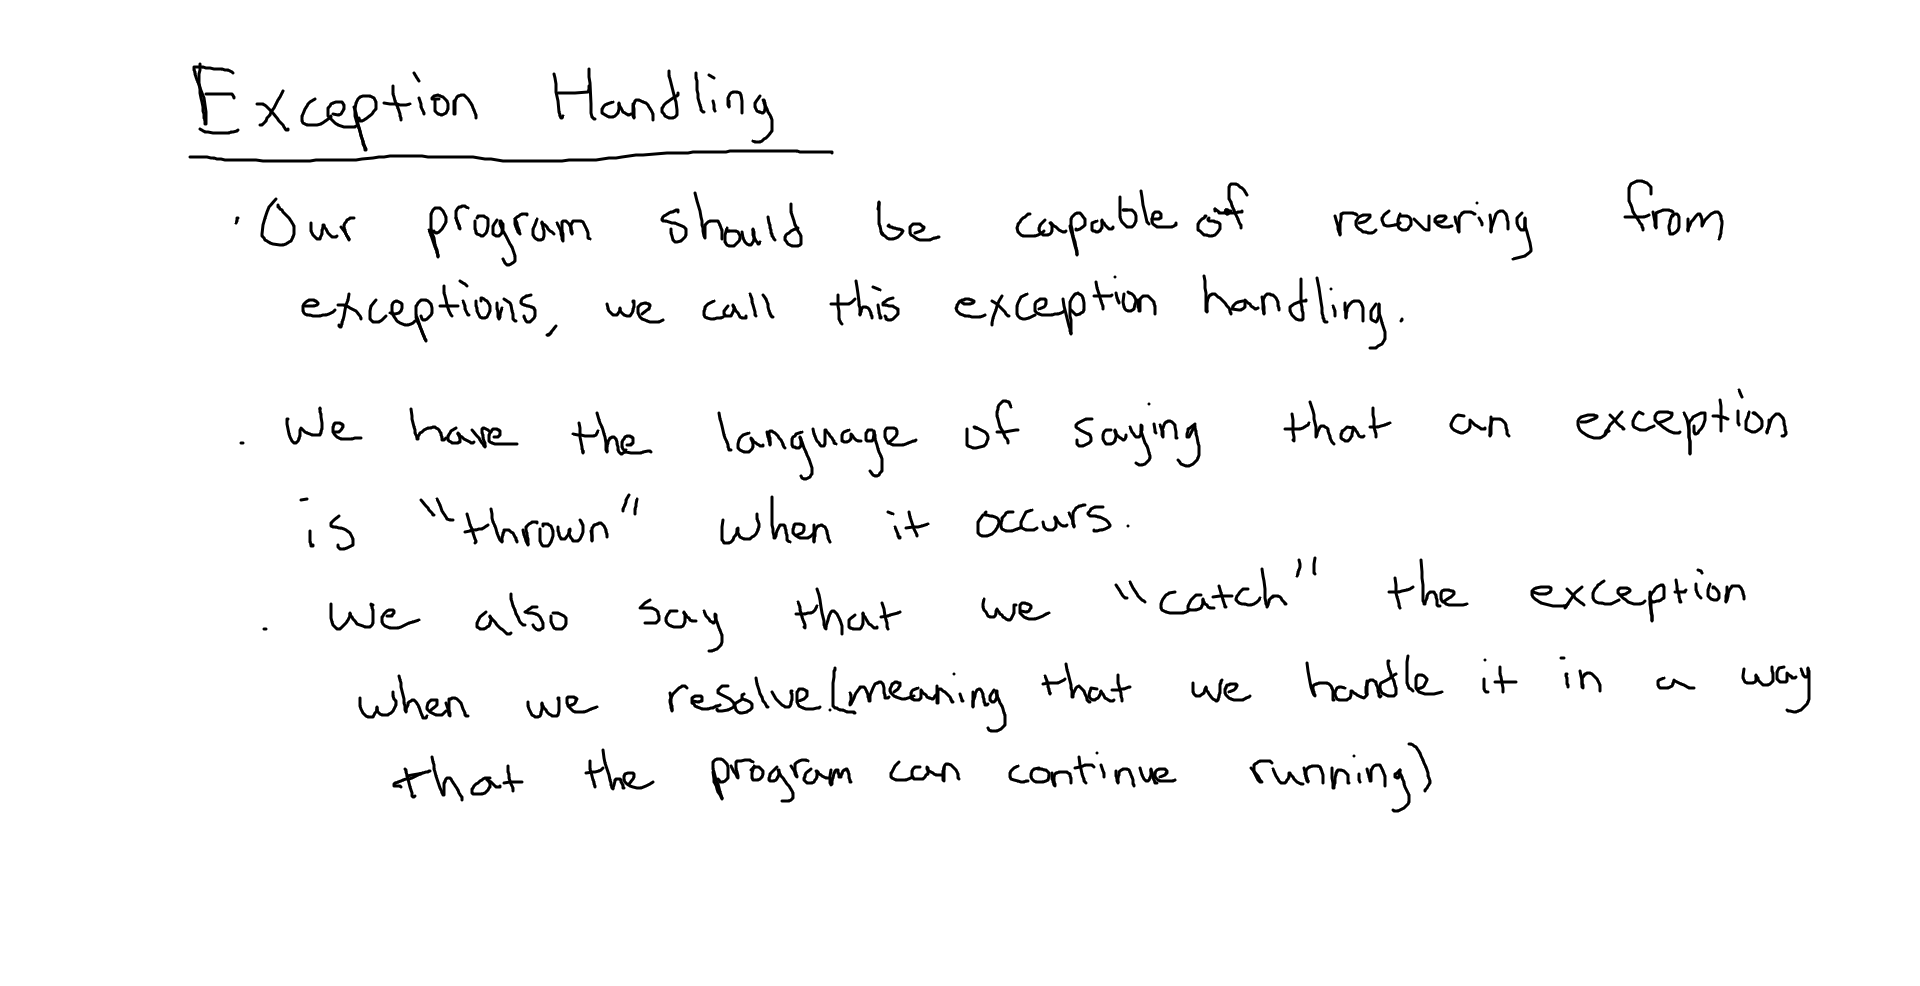 Exception Handling
· Our program should be capable of recovering from
exceptions, we call this exception handling.
· We have the language of saying that an exception
is "thrown" when it occurs.
· We also say that we "catch" the exception
when we resolve.(meaning that we handle it in a way
that the program can continue running)